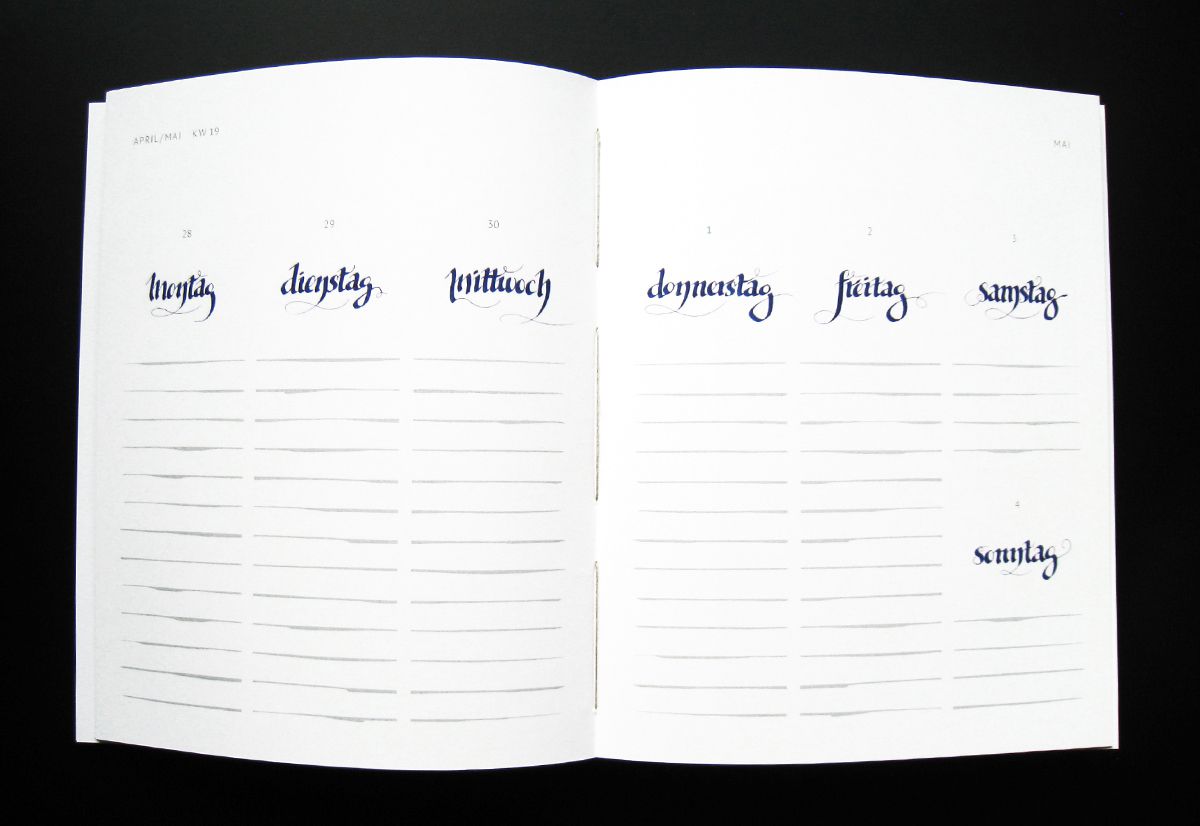 APRIL/MAI KW 19
28
montag
29
dienstag
30
mittwoch
MAI
1
donnerstag
2
freitag
3
samstag
4
sonntag